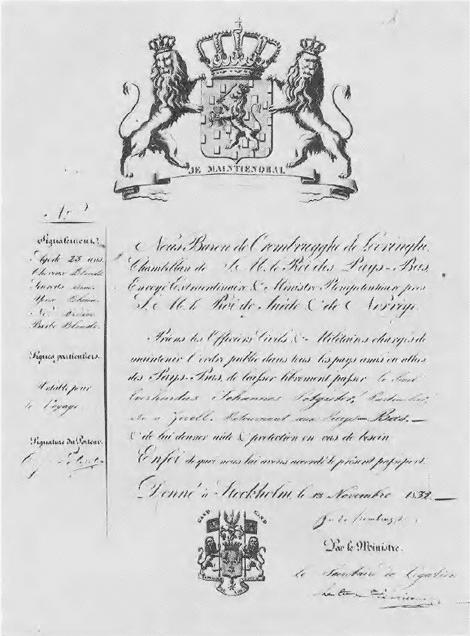 JE MAINTIENDRAI
Signalement
Agé de 23 ans
Cheveux Blonds
Yeux
Nez
Barbe Blonde
Signes particuliers.
Valable pour
le Voyage
Signature du Porteur
Nous Baron de Crombrugghe de Looringhe
Chambellan de S. M. le Roi des Pays-Bas,
Envoyé Extraordinaire & Ministre Plénipotentiaire près
S. M. le Roi de Suède & de Norvège
Prions les Officiers Civils & Militaires chargés de
maintenir l'ordre public dans tous les pays amis ou alliés
des Pays-Bas, de laisser librement passer le
Everhardus Johannes Potgieter,
né à Zwoll. Retournant aux Pays-Bas.
& de lui donner aide & protection en cas de besoin
En foi de quoi nous lui avons accordé le présent passeport.
Donné à Stockholm le 13 Novembre 1832
GAND GAND
Par le Ministre.
Le Secrétaire de Légation